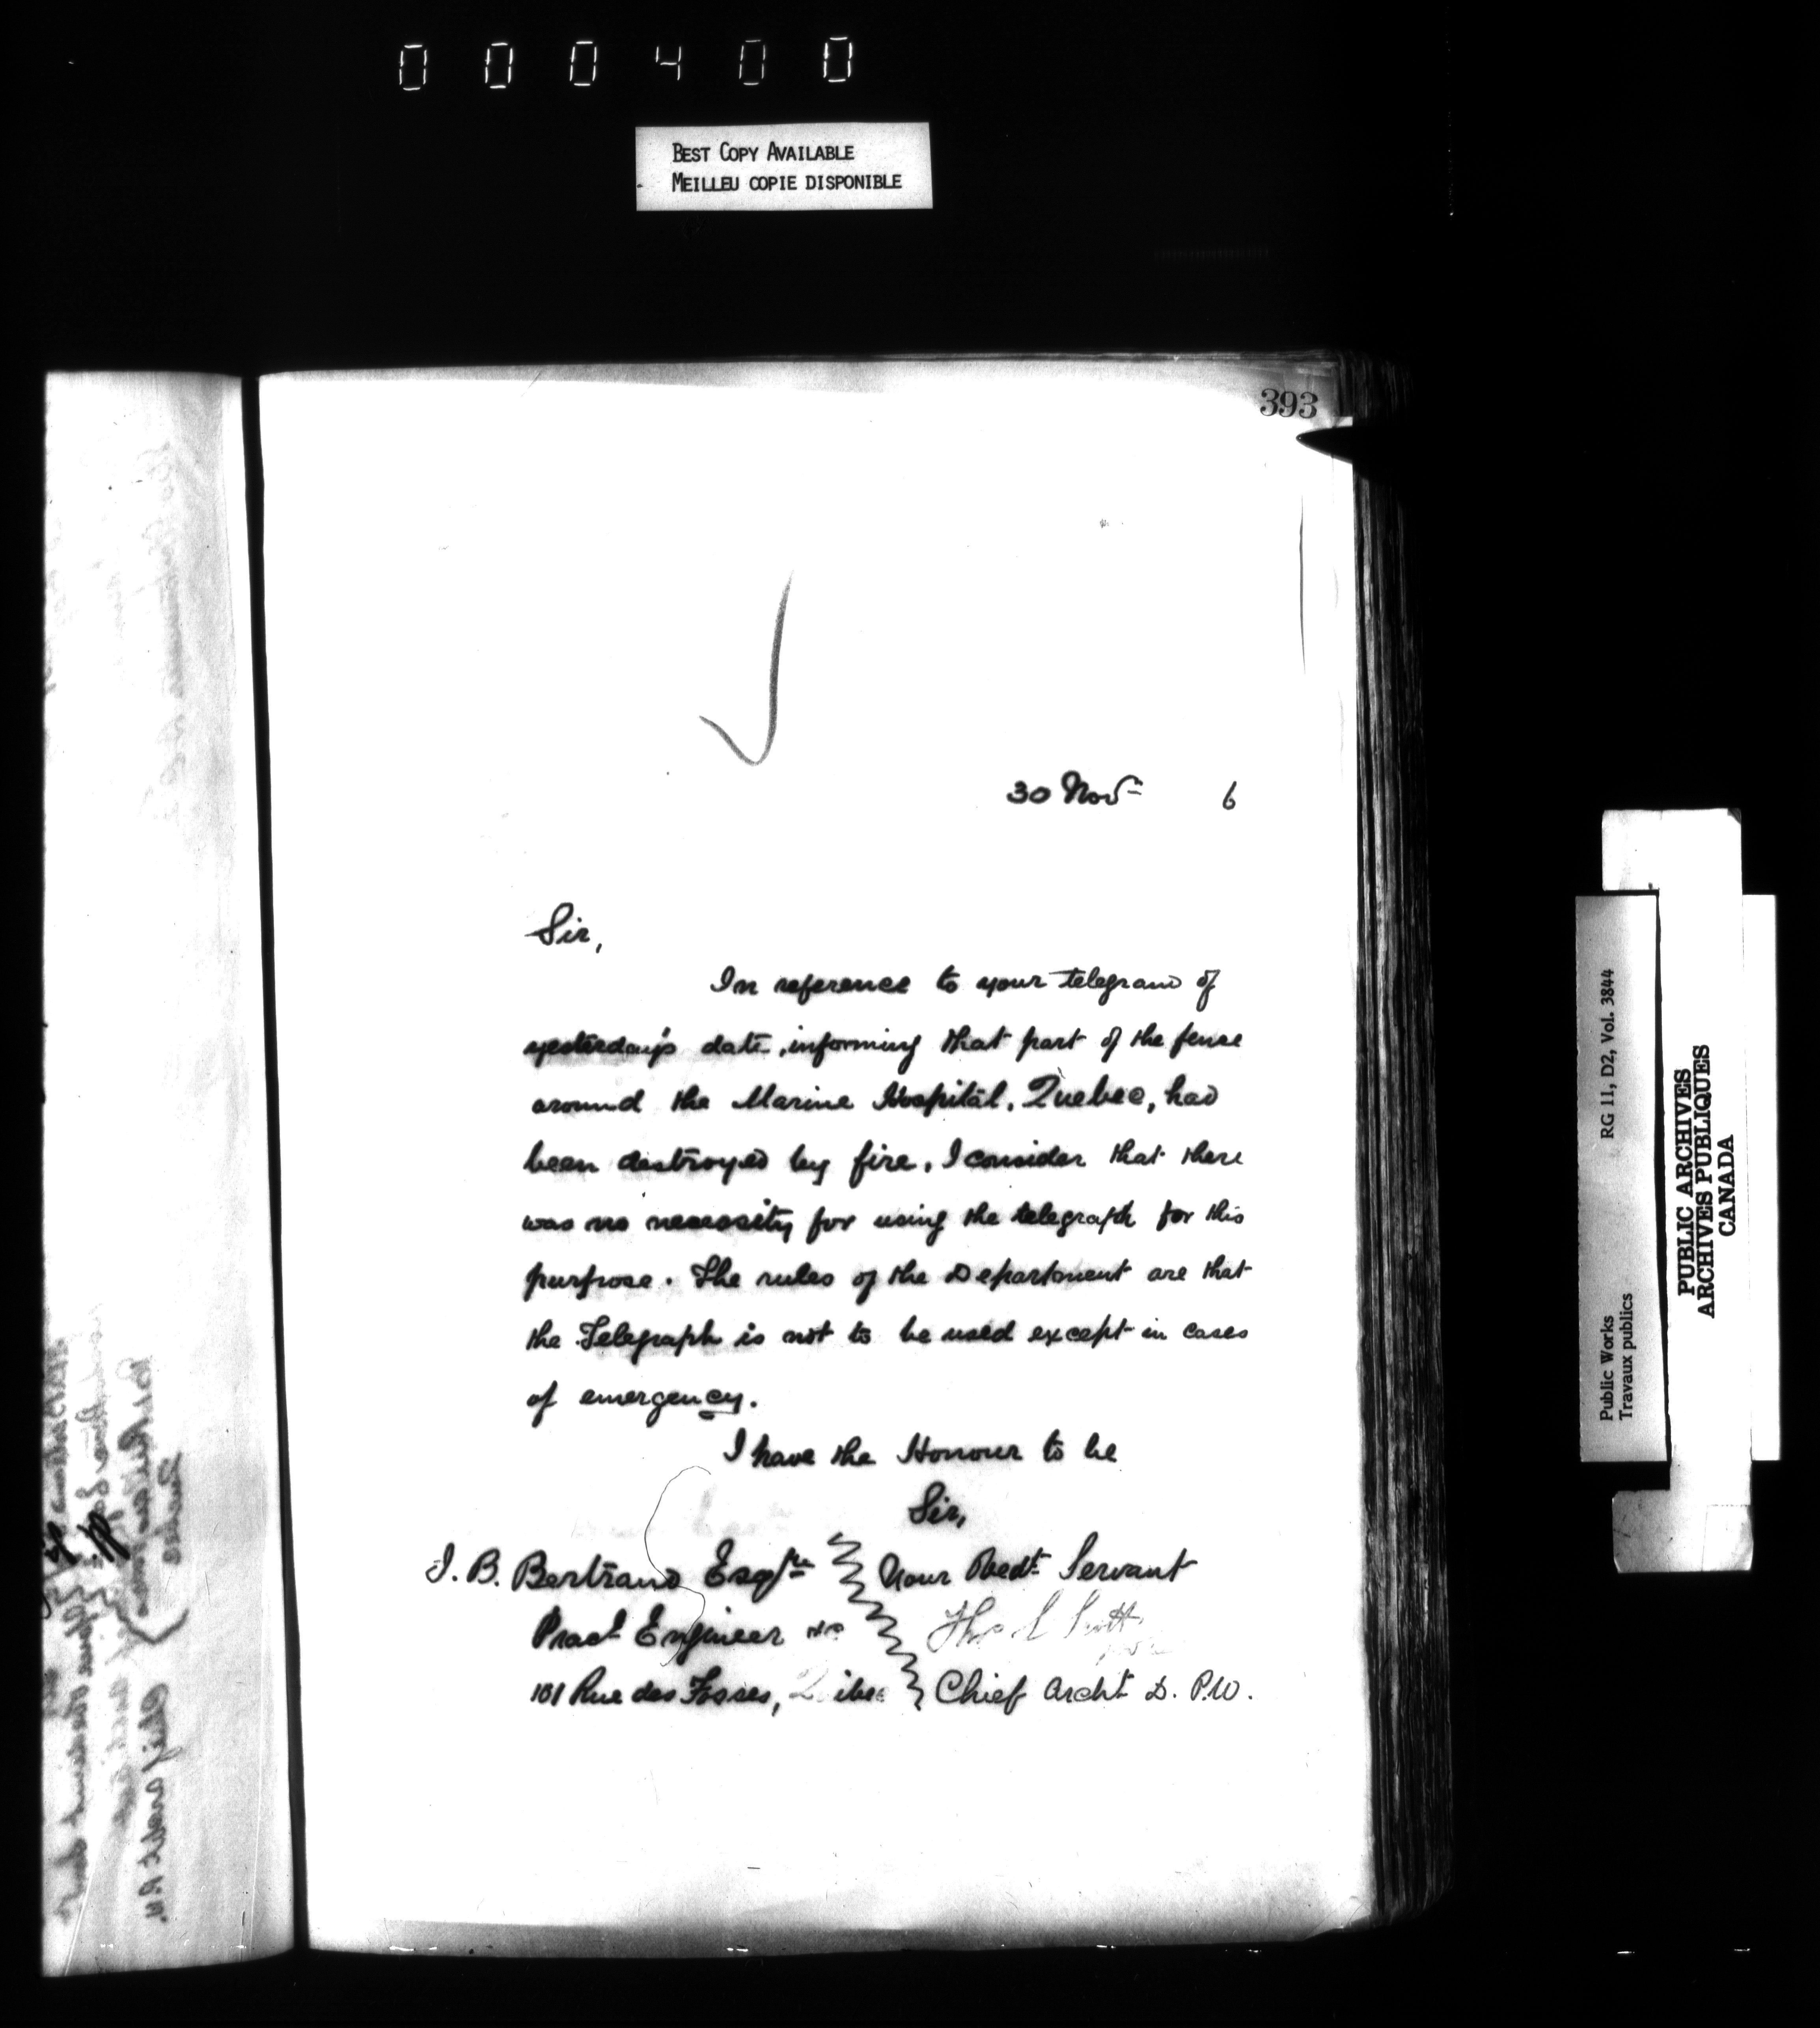 000400
BEST COPY AVAILABLE
MEILLEU COPIE DISPONIBLE
393
30 Novr 6
Sir,
In reference to your telegram of
yesterday's date, informing that part of the fence
around the Marine Hospital, Quebec, had
been destroyed by fire, I consider that there
was no necessity for using the telegraph for this
purpose. The rules of the Department are that
the Telegraph is not to be used except in cases
of emergency.
I have the Honour to be
Sir,
J. B. Bertrand Esqre Your Obedt Servant
Pract Engineer &c
101 Rue des Fosses, Chief Archt D. P.W.
Public Works RG 11, D2, Vol. 3844
Travaux publics
PUBLIC ARCHIVES
ARCHIVES PUBLIQUES
CANADA